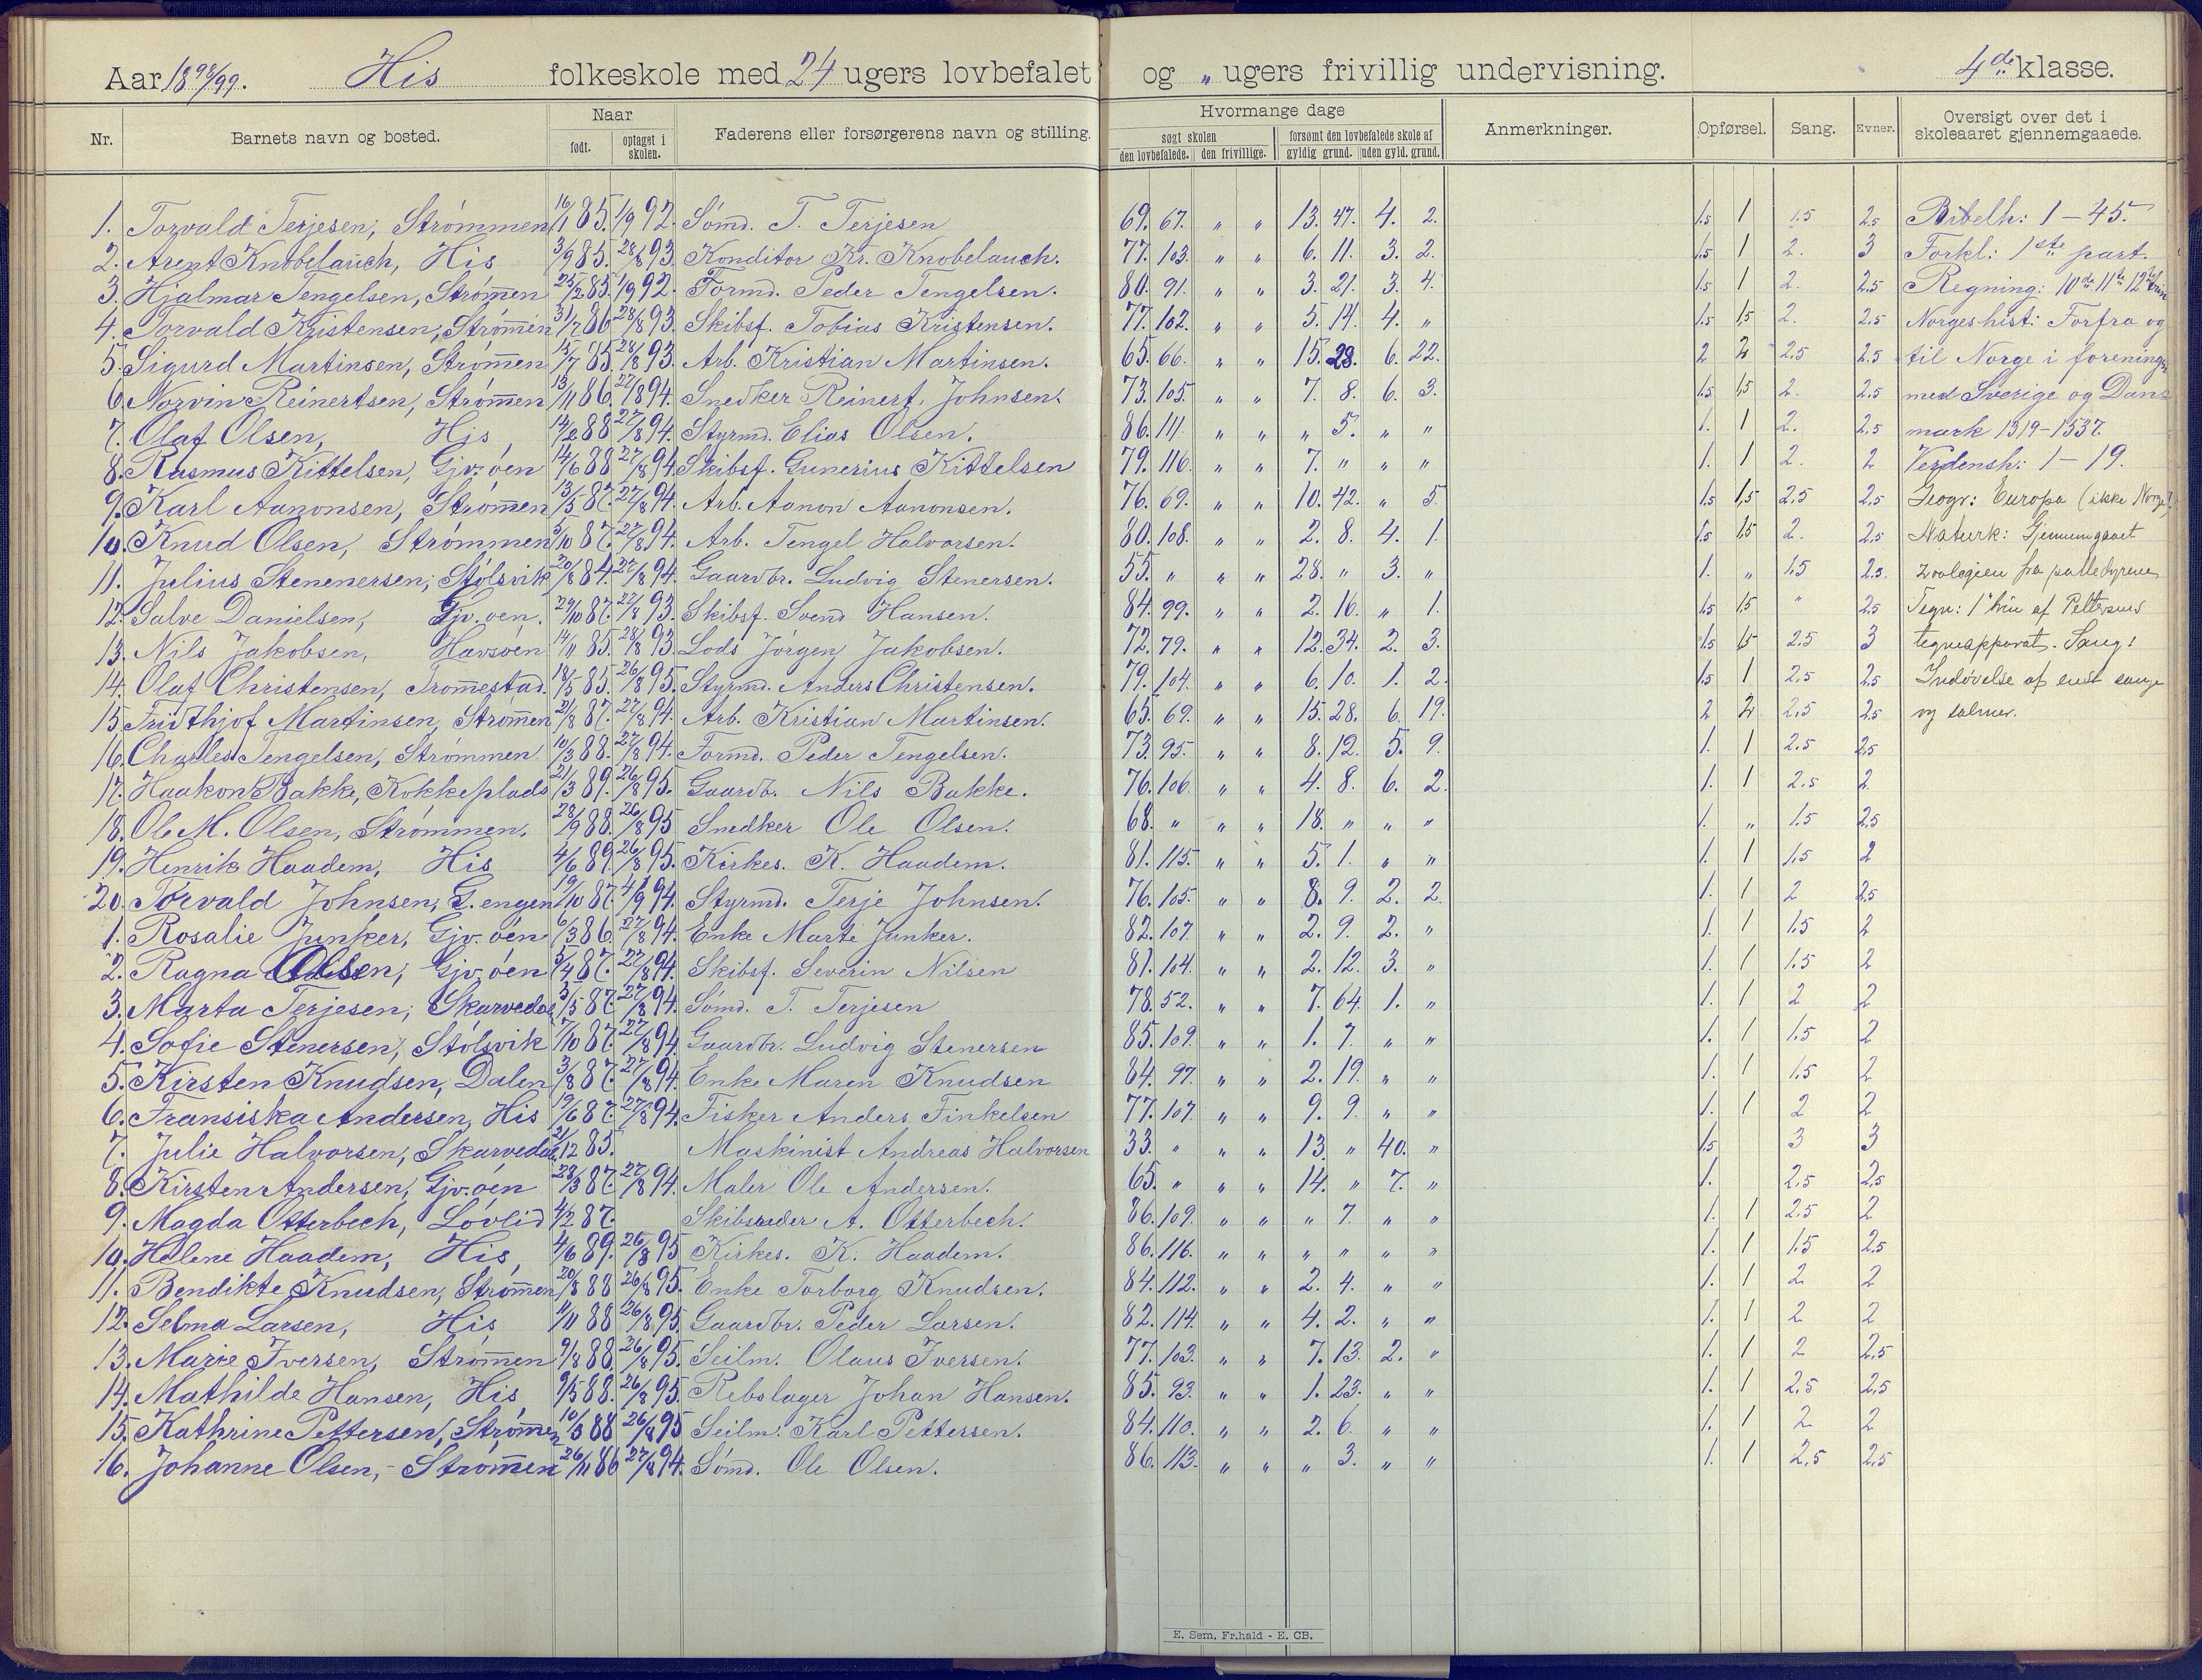 Aar 1898/99. His folkeskole med 24 ugers lovbefalet og " ugers frivillig undervisning. 4de klasse.
Nr. Barnets navn og bosted. Naar født. optaget i skolen. Faderens eller forsørgerens navn og stilling. Hvormange dage søgt skolen den lovbefalede. den frivillige. forsømt den lovbefalede skole af gyldig grund. uden gyld. grund. Anmerkninger. Opførsel. Sang. Evner. Oversigt over det i skoleaaret gjennemgaaede.
1. Torvald Terjesen, Strømmen 16/1 85. 1/9 92. Sømd. T. Terjesen 69. 67. " " 13. 47. 4. 2. 1.5 1 1.5 2.5 Bibelh: 1 – 45.
2. Arent Knobelauch, His 3/9 85. 28/8 93. Konditor Kr. Knobelauch. 77. 103. " " 6. 11. 3. 2. 1.5 1 2. 3 Forkl.: 1ste part.
3. Hjalmar Tengelsen, Strømmen 25/2 85. 1/9 92. Formd. Peder Tengelsen. 80. 91. " " 3. 21. 3. 4. 1.5 1 2. 2.5 Regning: 10de 11te 12te trin
4. Torvald Kristensen, Strømmen 31/7 86 28/8 93. Skibsf. Tobias Kristensen. 77. 102. " " 5. 14. 4. " 1.5 1.5 2. 2.5 Norgeshist: Forfra og
5. Sigurd Martinsen, Strømmen 15/7 85. 28/8 93. Arb. Kristian Martinsen. 65. 66. " " 15. 28. 6. 22. 2 2 2.5 2.5 til Norge i forening
6. Norvin Reinertsen, Strømmen 13/11 86. 27/8 94. Snedker Reinert Johnsen. 73. 105. " " 7. 8. 6. 3. 1.5 1.5 2. 2.5 med Sverige og Dan-
7. Olaf Olsen, His 14/2 88 27/8 94. Styrmd. Elias Olsen. 86. 111. " " " 5. " " 1. 1 2. 2.5 mark 1319–1537.
8. Rasmus Kittelsen, Gjv.øen 14/6 88 27/8 94. Skibsf. Gunerius Kittelsen 79. 116. " " 7. " " " 1. 1 2. 2 Verdensh: 1 – 19.
9. Karl Aanonsen, Strømmen 13/5 87. 27/8 94. Arb. Aanon Aanonsen. 76. 69. " " 10. 42. " 5. 1.5 1.5 2.5 2.5 Geogr: Europa (ikke Norge).
10. Knud Olsen, Strømmen 5/10 87. 27/8 94. Arb. Tengel Halvorsen. 80. 108. " " 2. 8. 4. 1. 1.5 1.5 2. 2.5 Naturk: Gjennemgaaet
11. Julius Stenenersen, Stølsvik 20/8 84. 27/8 94. Gaardbr. Ludvig Stenersen. 55. " " " 28. " 3. " 1. " 1.5 2.5 zoologien fra padledyrene
12. Salve Danielsen, Gjv.øen. 29/10 87. 22/8 93. Skibsf. Svend Hansen. 84. 99. " " 2. 16. " 1. 1.5 1.5 " 2.5 Tegn: 1ste trin af Pettersens
13. Nils Jakobsen, Havsøen 14/11 85. 28/8 93. Lods Jørgen Jakobsen. 72. 79. " " 12. 34. 2. 3. 1.5 1.5 2.5 3 tegneapparat. Sang:
14. Olaf Christensen, Tromestad. 18/5 85. 26/8 95. Styrmd. Anders Christensen. 79. 104. " " 6. 10. 1. 2. 1.5 1 2.5 2.5 Indøvelse af enst sange
15. Fridthjof Martinsen, Strømmen 21/8 87. 27/8 94. Arb. Kristian Martinsen. 65. 69. " " 15. 28. 6. 19. 2 2 2.5 2.5 og salmer.
16. Charles Tengelsen, Strømmen 10/3 88. 27/8 94. Formd. Peder Tengelsen. 73. 95. " " 8. 12. 5. 9. 1. 1 2.5 2.5
17. Haakon Bakke, Kokkeplads 21/3 89. 26/8 95. Gaardb. Nils Bakke. 76. 106. " " 4. 8. 6. 2. 1. 1 2.5 2
18. Ole M. Olsen, Strømmen. 28/9 88. 26/8 95 Snedker Ole Olsen. 68. " " " 18. " " " 1. " 1.5 2.5
19. Henrik Haadem, His 4/6 89. 26/8 95. Kirkes. K. Haadem. 81. 115. " " 5. 1. " " 1. 1 1.5 2
20. Torvald Johnsen, G.engen 19/10 87. 4/9 94. Styrmd. Terje Johnsen. 76. 105. " " 8. 9. 2. 2. 1. 1 2 2.5
1. Rosalie Junker, Gjv.øen 6/3 86. 27/8 94. Enke Marte Junker. 82. 107. " " 2. 9. 2. " 1. 1 1.5 2
2. Ragna Olsen, Gjv.øen 5/4 87. 27/8 94. Skibsf. Severin Nilsen 81. 104. " " 2. 12. 3. " 1. 1 1.5 2
3. Marta Terjesen, Skarvedal 3/5 87. 27/8 94. Sømd. T. Terjesen 78. 52. " " 7. 64. 1. " 1. 1 2 2
4. Sofie Stenersen, Stølsvik 7/10 87. 27/8 94. Gaardbr. Ludvig Stenersen 85. 109. " " 1. 7. " " 1. 1 1.5 2
5. Kirsten Knudsen, Dalen 3/8 87. 27/8 94. Enke Maren Knudsen 84. 97. " " 2. 19. " " 1. 1 1.5 2
6. Fransiska Andersen, His 19/6 87. 27/8 94. Fisker Anders Finkelsen 77. 107. " " 9. 9. " " 1. 1 2 2
7. Julie Halvorsen, Skarvedal 21/12 85. Maskinist Andreas Halvorsen 33. " " " 13. " 40. " 1.5 3 3
8. Kirsten Andersen, Gjv.øen 28/3 87. 27/8 94. Maler Ole Andersen. 65. " " " 14. " 7. " 1. 2.5 2.5
9. Magda Otterbech, Løvlid 4/2 87. Skibsreder A. Otterbech. 86. 109. " " " 7. " " 1. 1 2.5 2
10. Helene Haadem, His, 4/6 89. 26/8 95 Kirkes. K. Haadem. 86. 116. " " " " " " 1. 1 1.5 2.5
11. Bendikte Knudsen, Strømmen 20/8 88 26/8 95. Enke Torborg Knudsen. 84. 112. " " 2. 4. " " 1. 1 2 2
12. Selma Larsen, His 11/11 88 26/8 95. Gaardbr. Peder Larsen. 82. 114. " " 4. 2. " " 1. 1 2 2
13. Marie Iversen, Strømmen 9/8 88. 26/8 95. Seilm. Olaus Iversen. 77. 103. " " 7. 13. 2. " 1. 1 2 2.5
14. Mathilde Hansen, His 9/5 88. 26/8 95. Rebslager Johan Hansen. 85. 93. " " 1. 23. " " 1. 1 2.5 2.5
15. Kathrine Pettersen, Strømmen 10/3 88 26/8 95 Seilm. Karl Pettersen. 84. 110. " " 2. 6. " " 1. 1 2 2
16. Johanne Olsen, Strømmen 26/11 86 27/8 94. Sømd. Ole Olsen. 86. 113. " " " 3. " " 1. 1 2.5 2.5
E. Sem, Fr.hald - E. CB.